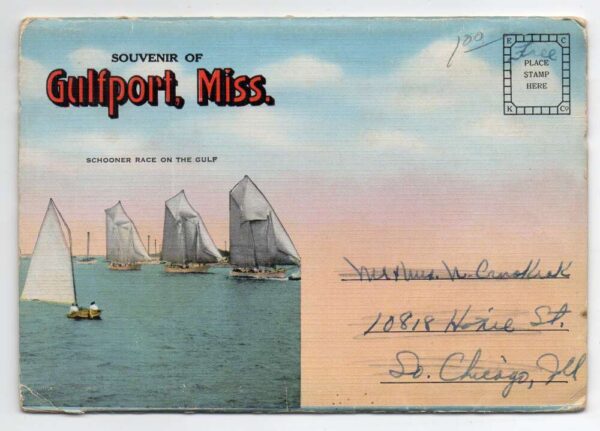 SOUVENIR OF
Gulfport, Miss.
SCHOONER RACE ON THE GULF
1.00
E C
Free
PLACE
STAMP
HERE
K Co
Mr & Mrs. N.
10818 Hoxie St.
So. Chicago, Ill